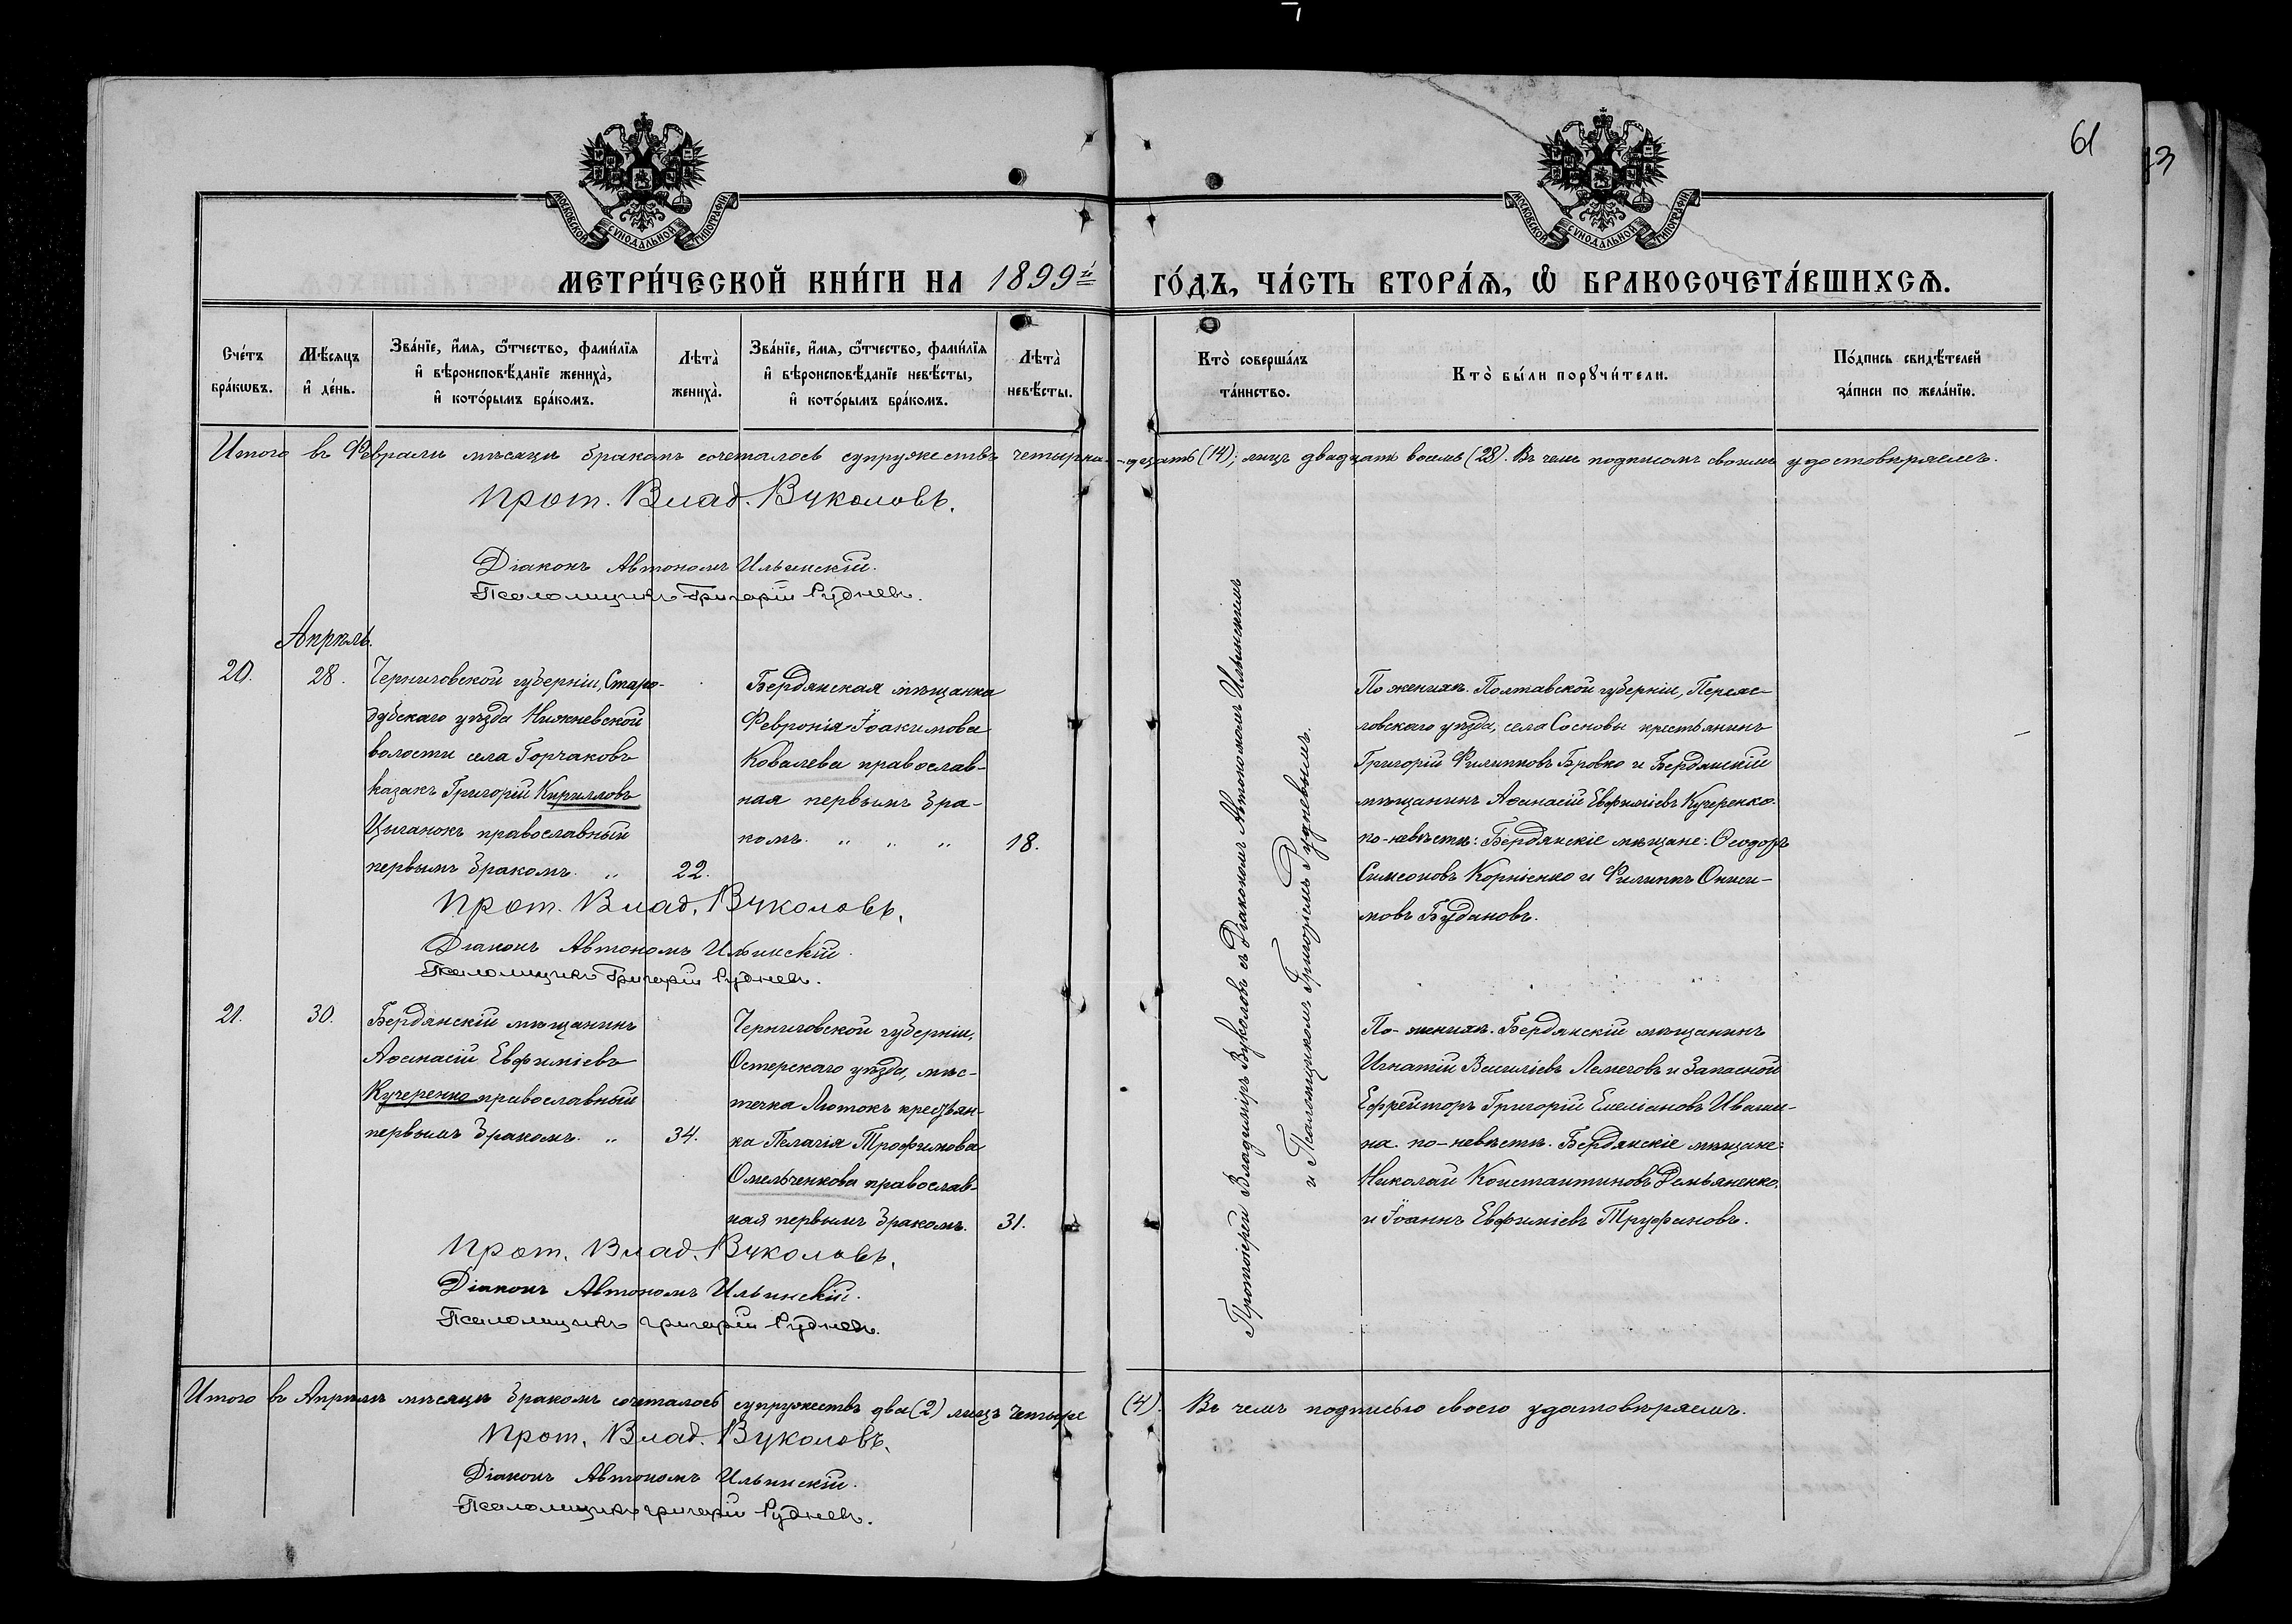 61
73
МОСКОВСКОЙ СѴНОДАЛЬНОЙ ТИПОГРАФІИ
МОСКОВСКОЙ СѴНОДАЛЬНОЙ ТИПОГРАФІИ
МЕТРИ́ЧЕСКОЙ КНИ́ГИ НА 1899й ГО́ДЪ, ЧА́СТЬ ВТОРА́Ѧ, Ѡ҆ БРАКОСОЧЕТА́ВШИХСѦ.
Сче́тъ
бра́кѡвъ.
Мѣ́сяцъ
и҆ де́нь.
Зва́нїе, и҆́мѧ, ѻ҆́тчество, фами́лїѧ
и҆ вѣроисповѣ́данїе жениха̀,
и҆ кото́рымъ бра́комъ.
Лѣта̀
жениха̀.
Зва́нїе, и҆́мѧ, ѻ҆́тчество, фами́лїѧ
и҆ вѣроисповѣ́данїе невѣ́сты,
и҆ кото́рымъ бра́комъ.
Лѣта̀
невѣ́сты.
Кто̀ соверша́лъ
та́инство.
Кто̀ бы́ли порꙋчи́тели.
По́дпись свидѣ́телей
за́писи по жела́нїю.
Итого въ Февралѣ мѣсяцѣ бракомъ сочеталось супружествъ четырнадцать (14); лицъ двадцать восемь (28). Въ чемъ подписомъ своимъ удостовѣряемъ.
Прот. Влад. Вуколовъ.
Діаконъ Автономъ Ильинскій.
Псаломщикъ Григорій Рудневъ.
Апрѣль.
20.
28.
Черниговской губерніи, Старо-
дубскаго уѣзда Нижневской
волости села Горчаковъ
казакъ Григорій Кирилловъ
Цыганокъ православный
первымъ бракомъ. „
22.
Бердянская мѣщанка
Февронія Іоакимова
Ковалева православ-
ная первымъ бра-
комъ. „ „ „
18.
Прот. Влад. Вуколовъ.
Діаконъ Автономъ Ильинскій.
Псаломщикъ Григорій Рудневъ.
Протоіерей Владиміръ Вуколовъ съ Діакономъ Автономомъ Ильинскимъ
и Псаломщикомъ Григоріемъ Рудневымъ.
По женихѣ. Полтавской губерніи, Переяс-
ловскаго уѣзда, села Сосновы крестьянинъ
Григорій Филипповъ Бровко и Бердянскій
мѣщанинъ Аѳанасій Евфиміевъ Кучеренко.
по-невѣстѣ: Бердянскіе мѣщане: Ѳеодоръ
Симеоновъ Корніенко и Филиппъ Ониси-
мовъ Будановъ.
21.
30.
Бердянскій мѣщанинъ
Аѳанасій Евфиміевъ
Кучеренко православный
первымъ бракомъ. „
34.
Черниговской губерніи,
Остерскаго уѣзда, мѣс-
течка Лютокъ крестьян-
ка Пелагія Трофимова
Омельченкова православ-
ная первымъ бракомъ.
31.
По-женихѣ. Бердянскій мѣщанинъ
Игнатій Василіевъ Лемеговъ и Запасной
Ефрейторъ Григорій Емеліановъ Иваши-
на. по-невѣстѣ. Бердянскіе мѣщане:
Николай Константиновъ Демьяненко.
и Іоаннъ Евфиміевъ Труфановъ.
Прот. Влад. Вуколовъ.
Діаконъ Автономъ Ильинскій.
Псаломщикъ Григорій Рудневъ.
Итого въ Апрѣлѣ мѣсяцѣ бракомъ сочеталось супружествъ два (2) лицъ четыре (4). Въ чемъ подписью своею удостовѣряемъ.
Прот. Влад. Вуколовъ.
Діаконъ Автономъ Ильинскій.
Псаломщикъ Григорій Рудневъ.